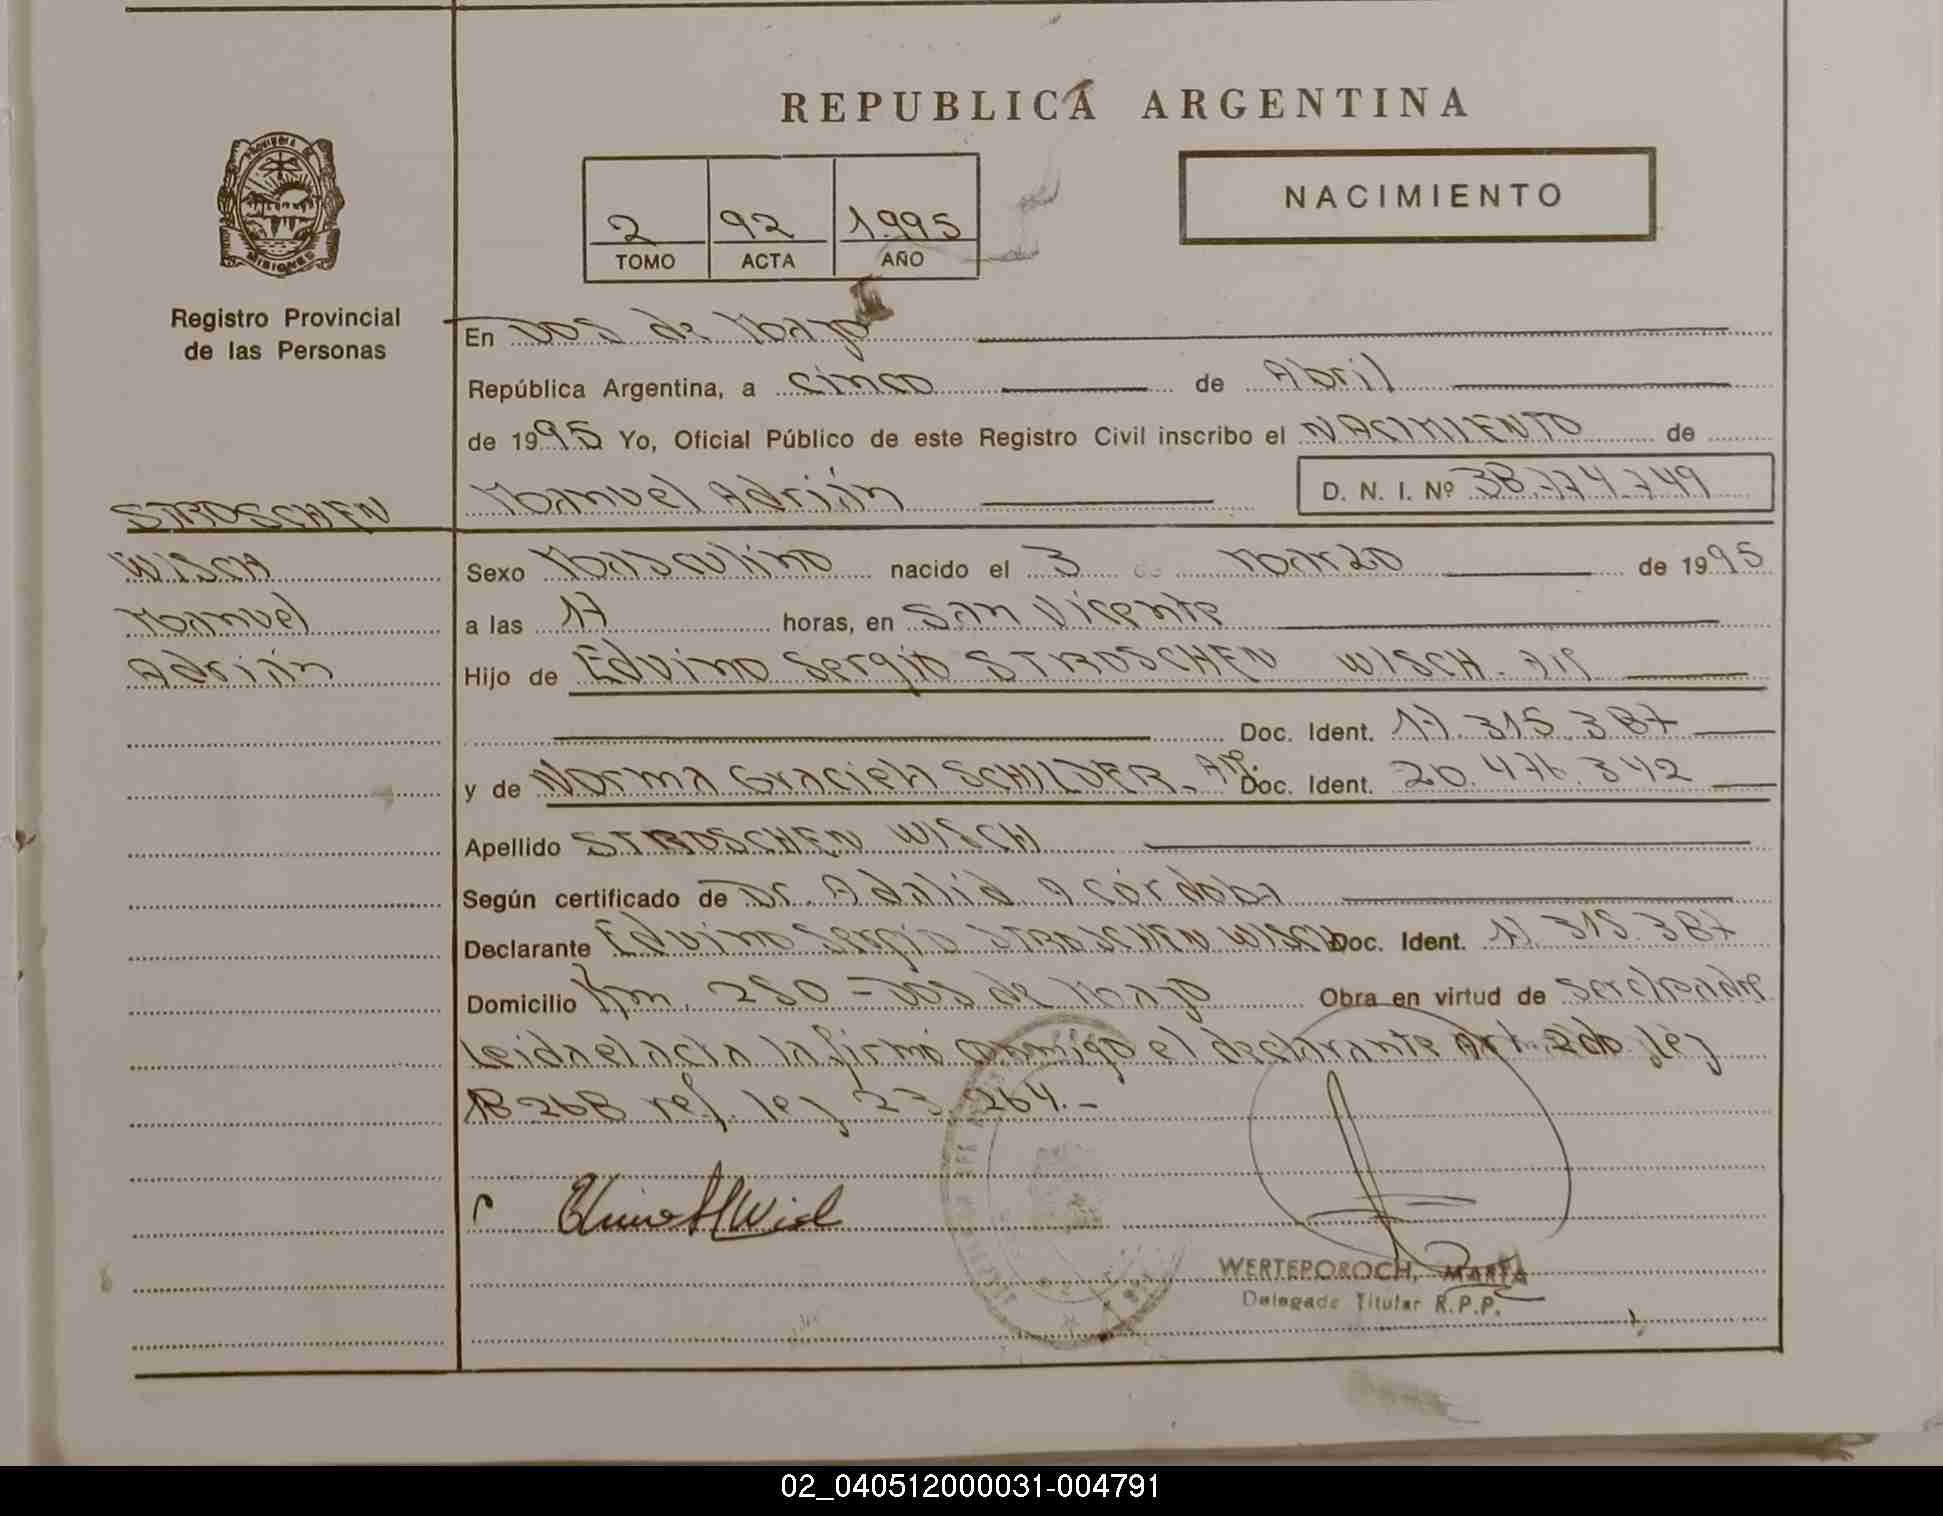 REPUBLICA ARGENTINA
PROVINCIA DE MISIONES
Registro Provincial
de las Personas
2 92 1995
TOMO ACTA AÑO
NACIMIENTO
En Dos de Mayo
República Argentina, a cinco de Abril
de 1995 Yo, Oficial Público de este Registro Civil inscribo el NACIMIENTO de
Manuel Adrián D. N. I. Nº 38.774.749
STROSCHEN
WISCH
Manuel
Adrián
Sexo Masculino nacido el 3 de Marzo de 1995
a las 17 horas, en San Vicente
Hijo de Eduino Sergio STROSCHEN WISCH. Arg
Doc. Ident. 17.315.387
y de Norma Graciela SCHILDER. Arg. Doc. Ident. 20.476.342
Apellido STROSCHEN WISCH
Según certificado de Dr. Adalid A Córdoba
Declarante Eduino Sergio STROSCHEN WISCH Doc. Ident. 17.315.387
Domicilio Km. 280 = Dos de Mayo Obra en virtud de ser el padre
Leida el acta la firmó conmigo el declarante Art. 2do ley
18268 ref. ley 23.264.-
WERTEPOROCH, MARTA
Delegado Titular R.P.P.
02_040512000031-004791